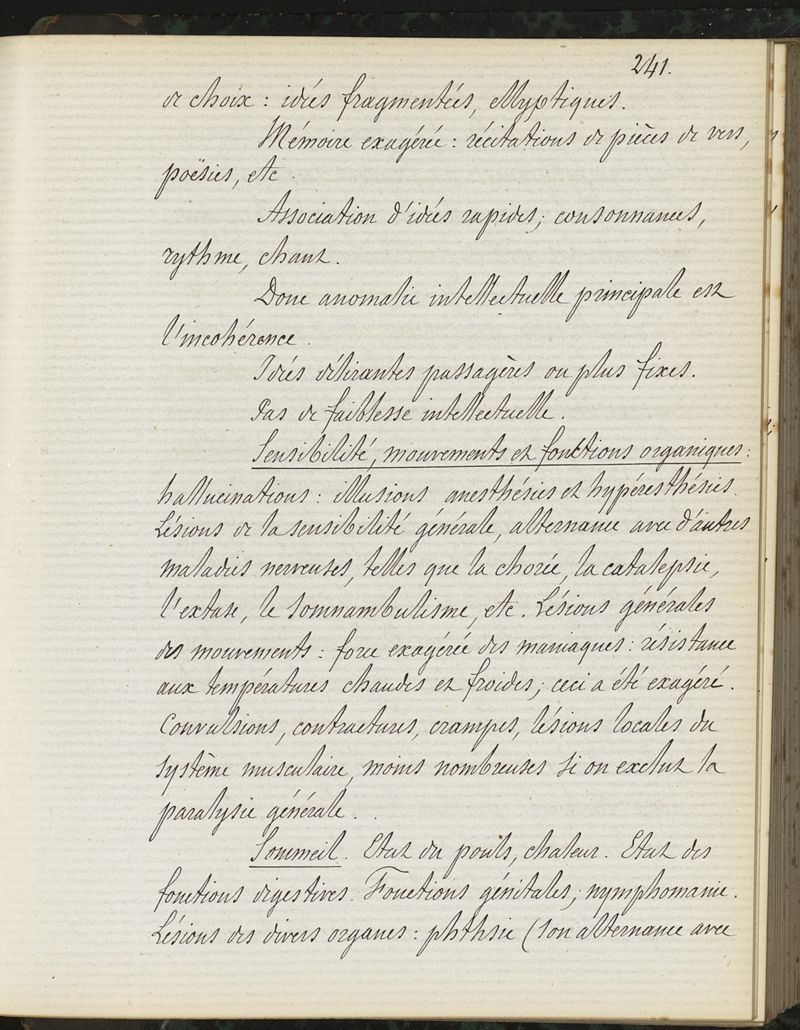 241.
de choix : idées fragmentées, ellyptiques.
Mémoire exagérée : récitations de pièces de vers,
poësies, etc.
Association d'idées rapides; consonnances,
rythme, chant.
Donc anomalie intellectuelle principale est
l'incohérence.
Idées délirantes passagères ou plus fixes.
Pas de faiblesse intellectuelle.
Sensibilité, mouvements et fonctions organiques :
hallucinations : illusions anesthésies et hypéresthésies.
Lésions de la sensibilité générale, alternance avec d'autres
maladies nerveuses, telles que la chorée, la catalepsie,
l'extase, le somnambulisme, etc. Lésions générales
des mouvements : force exagérée des maniaques : résistance
aux températures chaudes et froides; ceci a été exagéré.
Convulsions, contractures, crampes, lésions locales du
système musculaire, moins nombreuses si on exclut la
paralysie générale.
Sommeil. Etat du pouls, chaleur. Etat des
fonctions digestives. Fonctions génitales; nymphomanie.
Lésions des divers organes : phthsie (son alternance avec